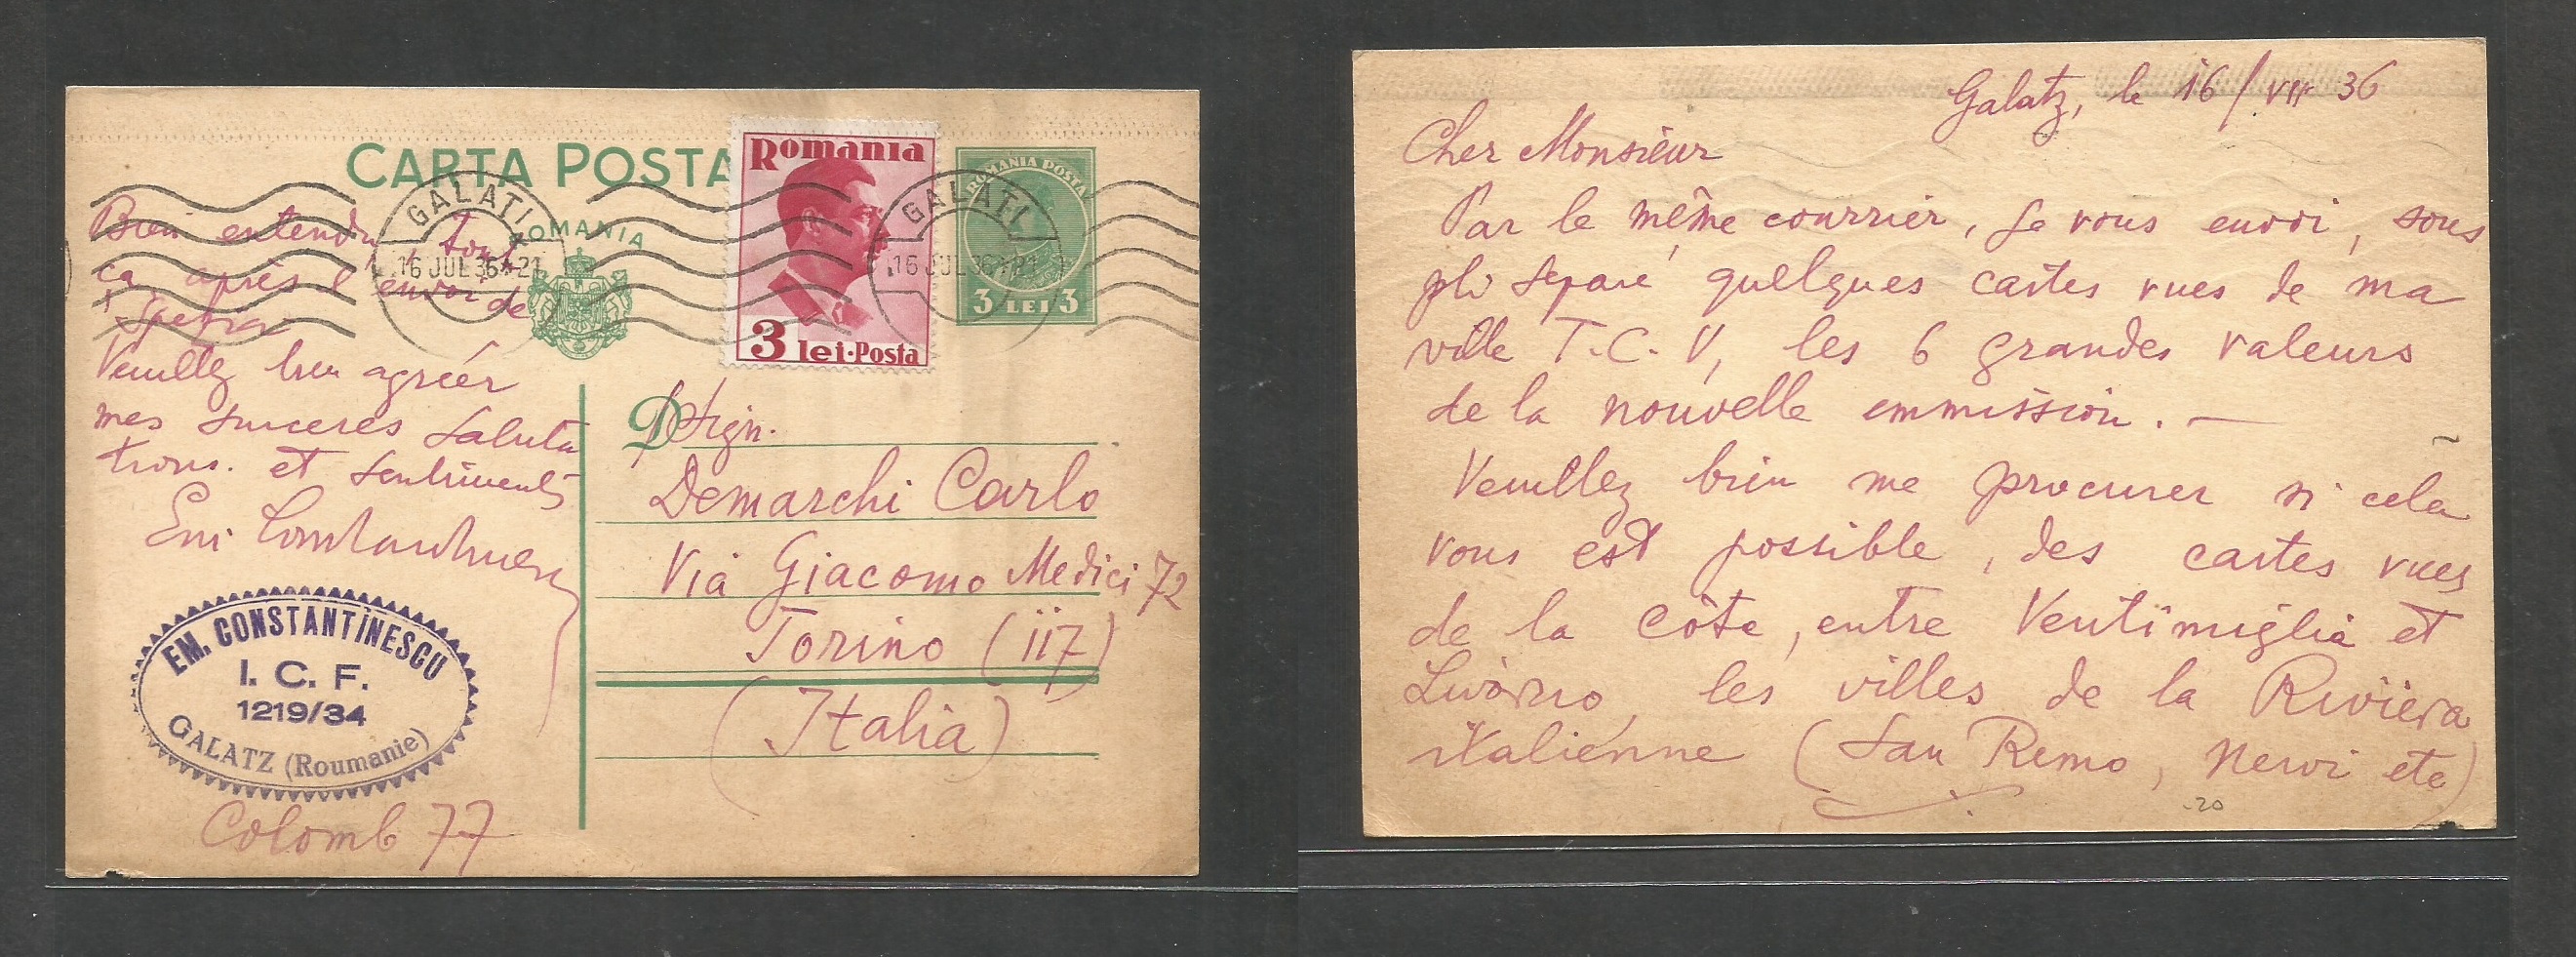 CARTA POSTA
ROMANIA
Romania
3 lei·Posta
ROMANIA POSTA
3 LEI 3
GALATI
16 JUL 36 21
GALATI
16 JUL 36 21
Bien entendu, tout
ça après l'envoi de
Veuillez bien agréer
mes sinceres saluta
tions. et sentiments
Em Constantinescu
EM. CONSTANTINESCU
I. C. F.
1219/34
GALATZ (Roumanie)
Colomb 77
D Sign.
Demarchi Carlo
Via Giacomo Medici 72
Torino (117)
(Italia)
Galatz, le 16/VII 36
Cher Monsieur
Par le même courrier, je vous envoi, sous
pli separé quelques cartes vues de ma
ville T.C.V, les 6 grandes valeurs
de la nouvelle emmission. —
Veuillez bien me procurer si cela
vous est possible, des cartes vues
de la côte, entre Ventimiglia et
Livorno, les villes de la Riviera
italienne (San Remo, Nervi etc)
.20